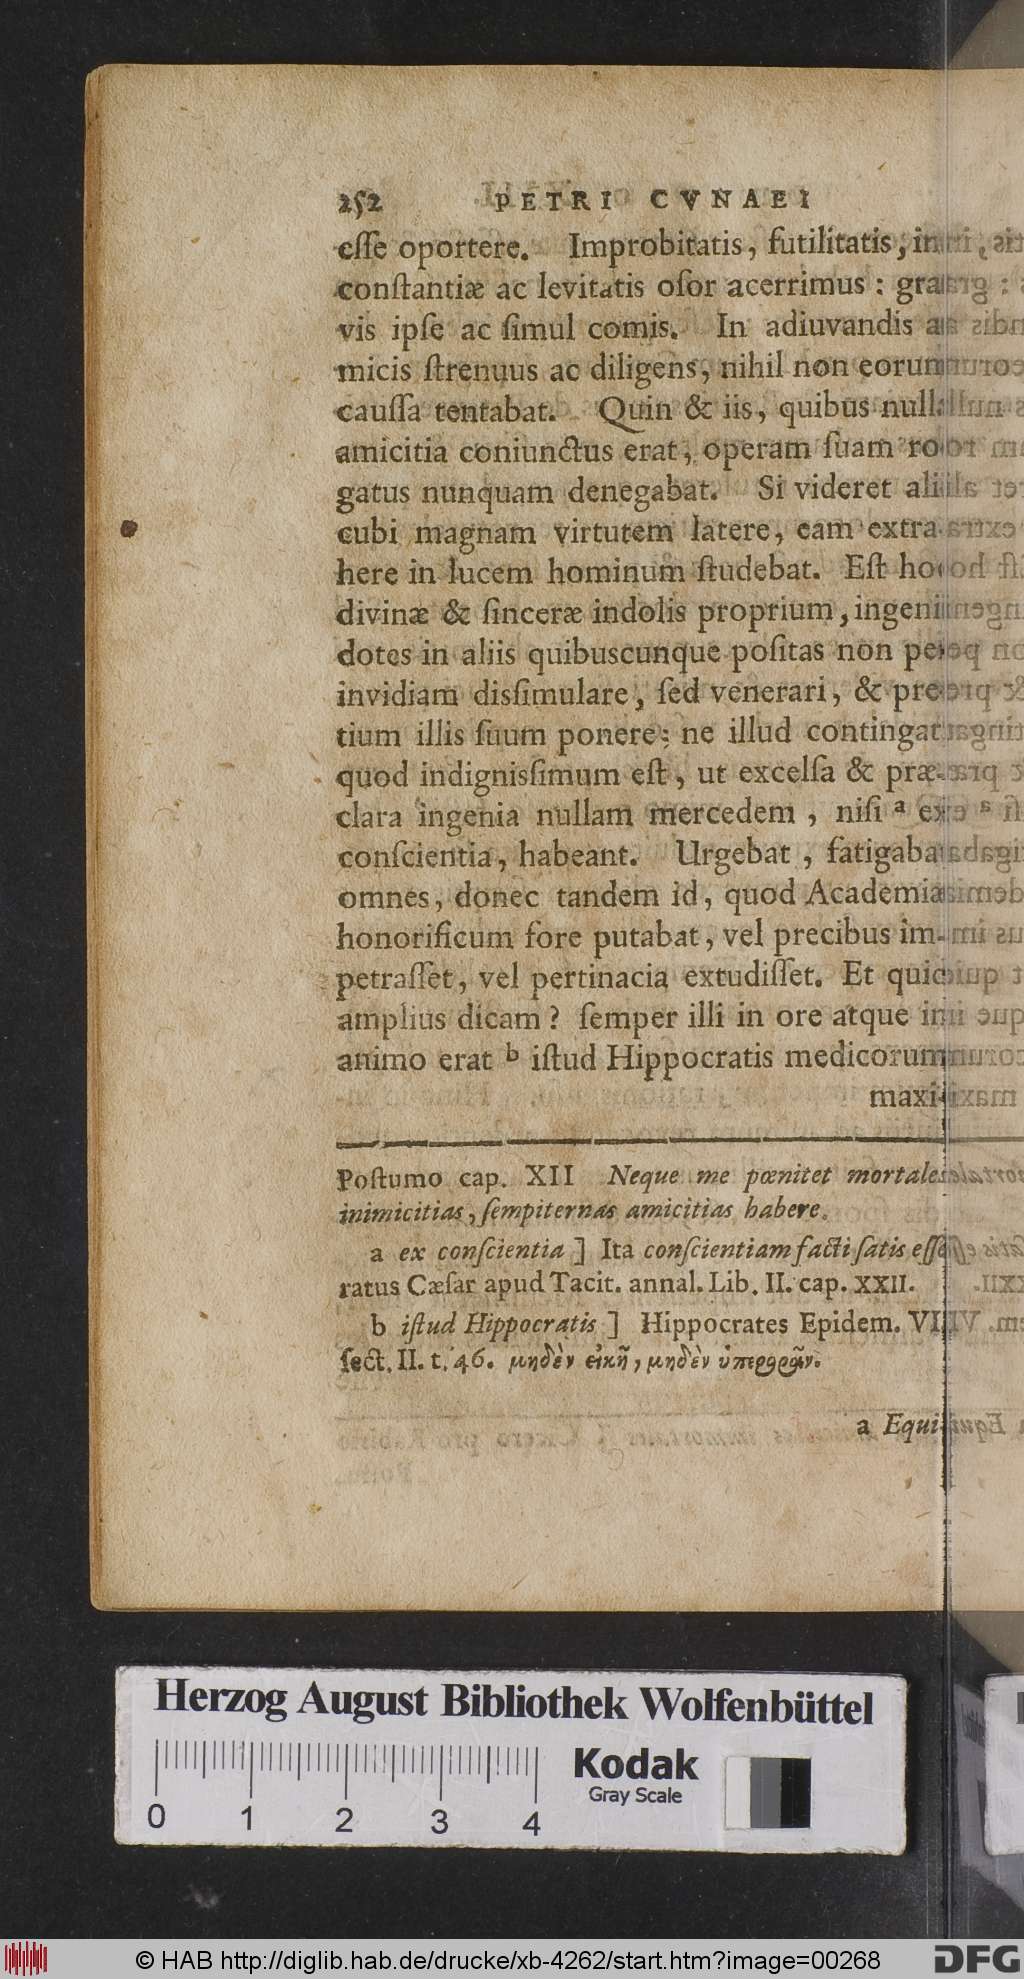 252 PETRI CVNAEI
esse oportere. Improbitatis, futilitatis, in
constantiæ ac levitatis osor acerrimus : gra
vis ipse ac simul comis. In adiuvandis a
micis strenuus ac diligens, nihil non eorum
caussa tentabat. Quin & iis, quibus nulla
amicitia coniunctus erat, operam suam ro
gatus nunquam denegabat. Si videret ali
cubi magnam virtutem latere, eam extra
here in lucem hominum studebat. Est hoc
divinæ & sinceræ indolis proprium, ingenii
dotes in aliis quibuscunque positas non per
invidiam dissimulare, sed venerari, & pre
tium illis suum ponere: ne illud contingat
quod indignissimum est, ut excelsa & præ-
clara ingenia nullam mercedem, nisi ª ex
conscientia, habeant. Urgebat, fatigabat
omnes, donec tandem id, quod Academiæ
honorificum fore putabat, vel precibus im-
petrasset, vel pertinacia extudisset. Et quid
amplius dicam? semper illi in ore atque in
animo erat ᵇ istud Hippocratis medicorum
maxi-
Postumo cap. XII Neque me pœnitet mortales
inimicitias, sempiternas amicitias habere.
a ex conscientia ] Ita conscientiam facti satis esse
ratus Cæsar apud Tacit. annal. Lib. II. cap. XXII.
b istud Hippocratis ] Hippocrates Epidem. VI.
sect. II. t. 46. μηδὲν εἰκῆ, μηδὲν ὑπερορᾶν.
a Equi
Herzog August Bibliothek Wolfenbüttel
Kodak
Gray Scale
0 1 2 3 4
© HAB http://diglib.hab.de/drucke/xb-4262/start.htm?image=00268 DFG